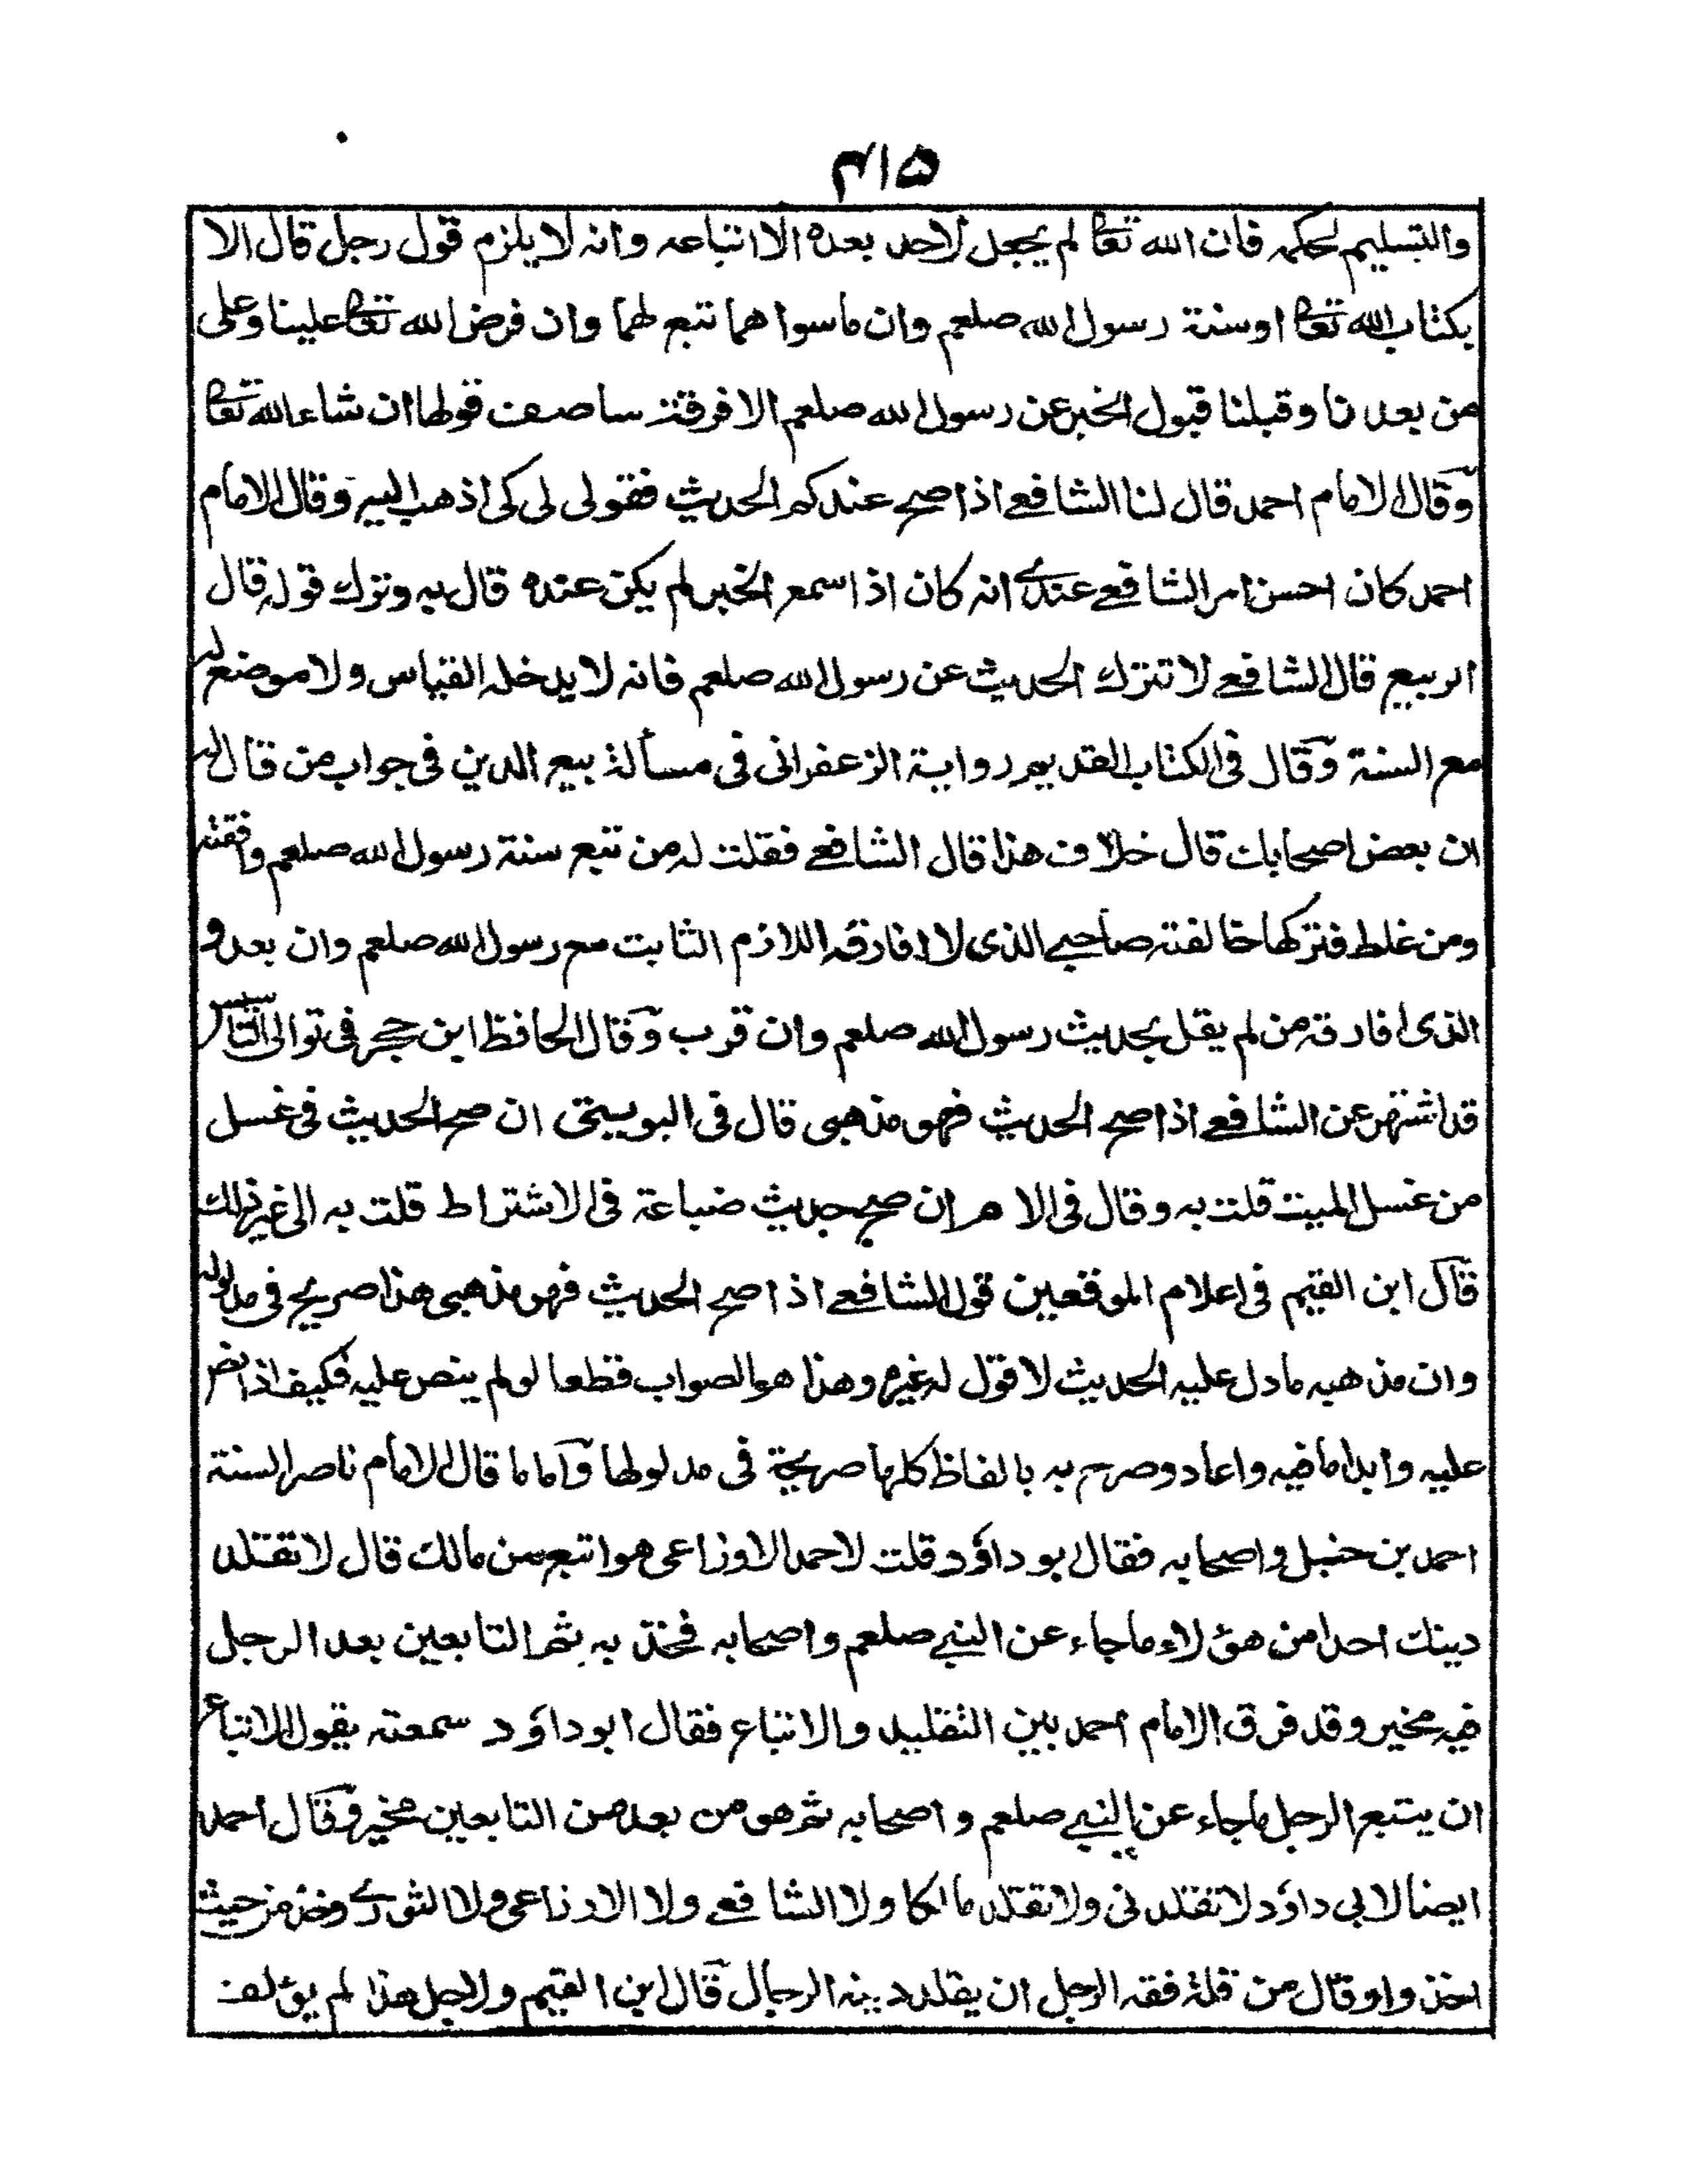 ۴۱۵
والتسليم لحكمه فان الله تعالى لم يجعل لاحد بعده الا اتباعه وانه لا يلزم قول رجل قال الا
بكتاب الله تعالى او سنة رسول الله صلعم وان ما سواهما تبع لهما وان فرض الله تعالى علينا وعلى
من بعدنا وقبلنا قبول الخبر عن رسول الله صلعم الا فرقة ساصف قولها ان شاء الله تعالى
وقال الامام احمد قال لنا الشافعے اذا صح عندكم الحديث فقولى لى كى اذهب اليه وقال الامام
احمد كان احسن امر الشافعے عندے انه كان اذا سمع الخبر لم يكن عنده قال به وترك قوله قال
الربيع قال الشافعے لا تترك الحديث عن رسول الله صلعم فانه لا يدخله القياس ولا موضع له
مع السنة وقال فى الكتاب القديم رواية الزعفرانى فى مسألة بيع الدين فى جواب من قال له
ان بعض اصحابك قال خلاف هذا قال الشافعے فقلت له من تبع سنة رسول الله صلعم وافقته
ومن غلط فتركها خالفته صاحبے الذى لا افارقه اللازم الثابت مع رسول الله صلعم وان بعد و
الذى افارقه من لم يقل بحديث رسول الله صلعم وان قرب وقال الحافظ ابن حجر فى توالى التاسيس
قد اشتهر عن الشافعے اذا صح الحديث فهو مذهبى قال فى البويطى ان صح الحديث فى غسل
من غسل الميت قلت به وقال فى الام ان صح حديث ضباعة فى الاشتراط قلت به الى غير ذلك
قال ابن القيم فى اعلام الموقعين قول الشافعے اذا صح الحديث فهو مذهبى هذا صريح فى مدلوله
وان مذهبه ما دل عليه الحديث لا قول له غيره وهذا هو الصواب قطعا لو لم ينص عليه فكيف اذا نص
عليه وابدا ما فيه واعاد وصرح به بالفاظ كلها صريحة فى مدلولها واما ما قال الامام ناصر السنة
احمد بن حنبل واصحابه فقال ابو داؤد قلت لاحمد الاوزاعى هو اتبع من مالك قال لا تقلد
دينك احدا من هؤلاء ما جاء عن النبے صلعم واصحابه فخذ به ثم التابعين بعد الرجل
فيه مخير وقد فرق الامام احمد بين التقليد والاتباع فقال ابو داؤد سمعته يقول الاتباع
ان يتبع الرجل ما جاء عن النبے صلعم واصحابه ثم هو من بعد من التابعين مخير وقال احمد
ايضا لابى داؤد لا تقلدنى ولا تقلد مالكا ولا الشافعے ولا الاوزاعى ولا الثورے وخذ من حيث
اخذوا وقال من قلة فقه الرجل ان يقلد دينه الرجال قال ابن القيم ولاجل هذا لم يؤلف